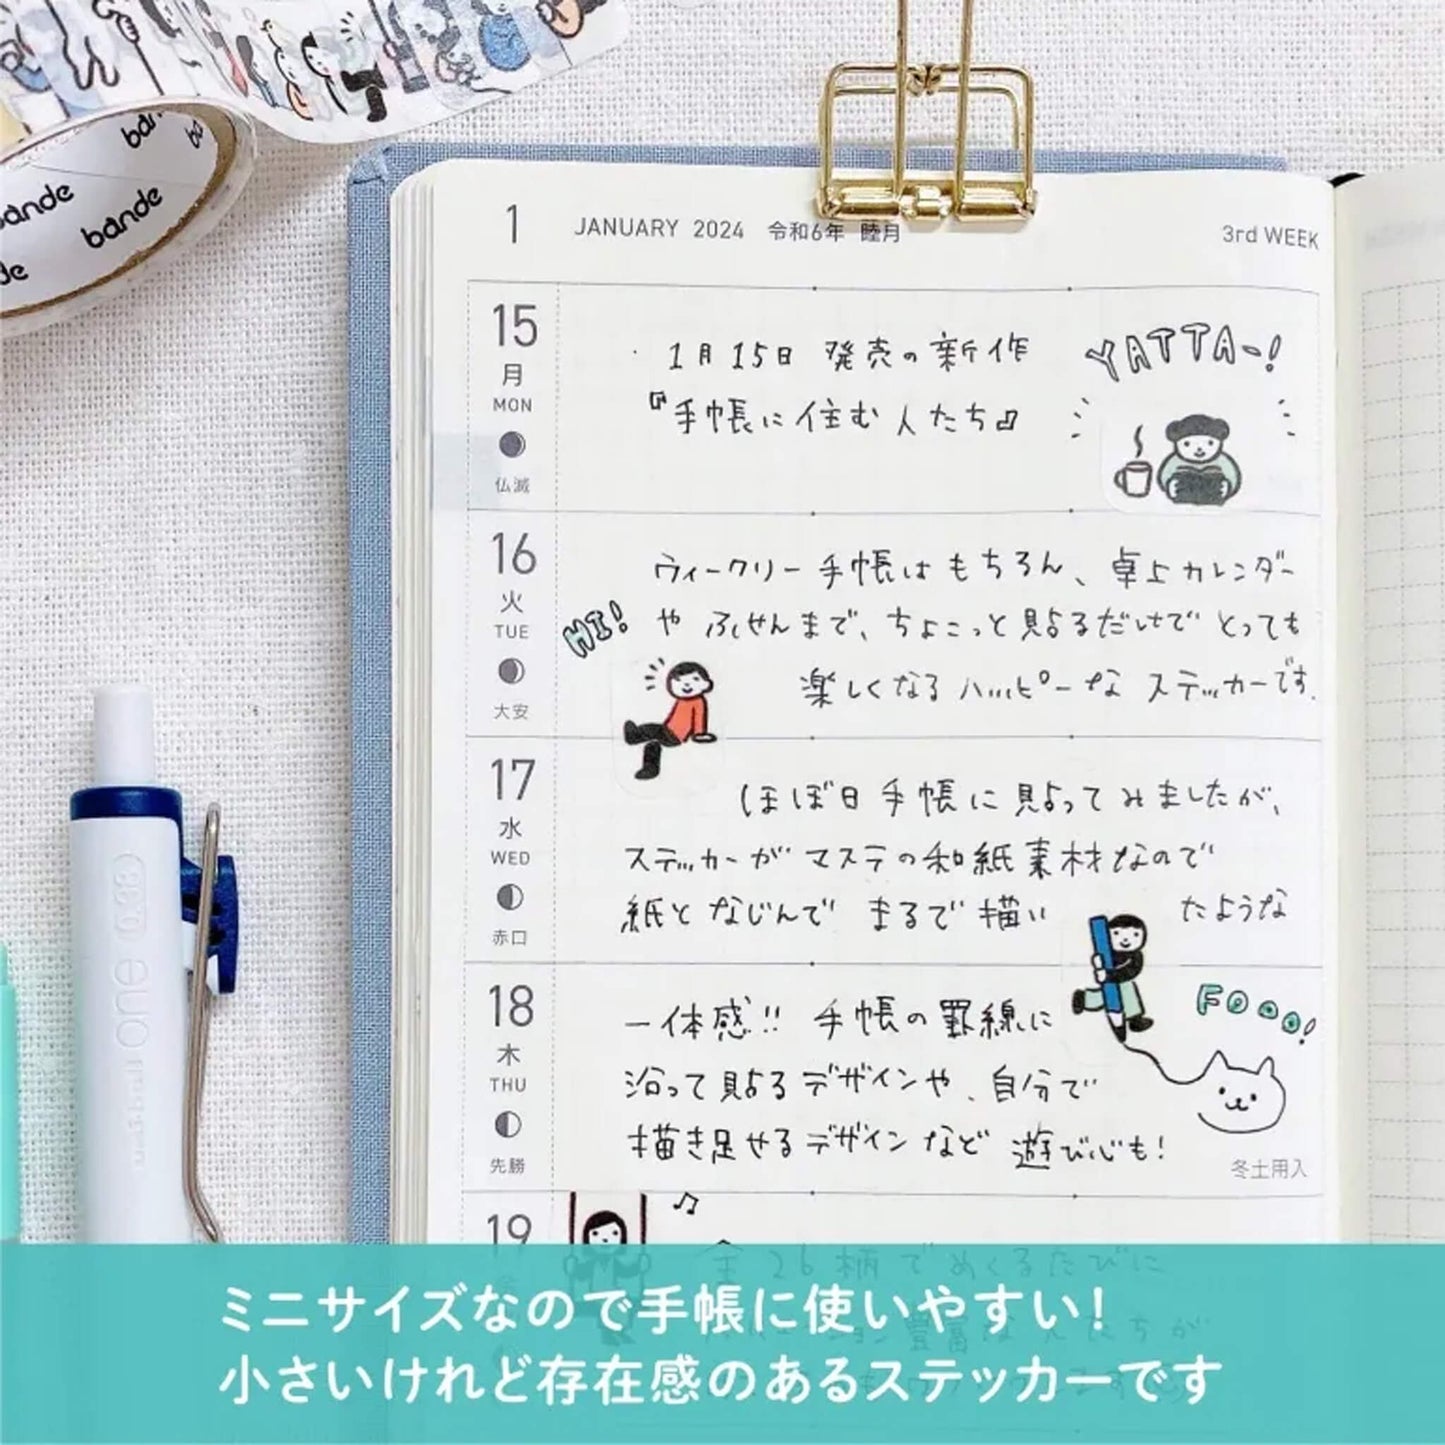 bande
bande
1 JANUARY 2024 令和6年 睦月 3rd WEEK
15
月
MON
仏滅
1月15日 発売の新作
『手帳に住む人たち』
YATTA~!
16
火
TUE
大安
HI!
ウィークリー手帳はもちろん、卓上カレンダー
や ふせんまで、ちょこっと貼るだけでとっても
楽しくなるハッピーな ステッカーです.
17
水
WED
赤口
ほぼ日手帳に貼ってみましたが、
ステッカーが マステの和紙素材なので
紙となじんで まるで描い たような
18
木
THU
先勝
一体感!! 手帳の罫線に
沿って貼るデザインや、自分で
描き足せるデザインなど 遊び心も!
FOOO!
冬土用入
19
全26柄でめくるたびに
ミニサイズなので手帳に使いやすい!
小さいけれど存在感のあるステッカーです